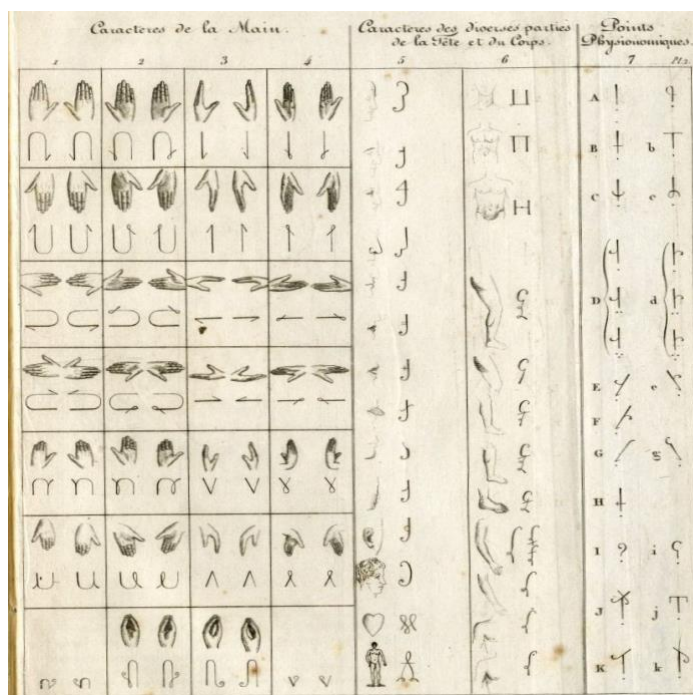 Caractères de la Main.
Caractères des diverses parties
de la Tête et du Corps.
Points
Physionomiques.
1 2 3 4 5 6 7 Pl. 2.
A
B b
C c
D d
E e
F
G g
H
I i
J j
K k